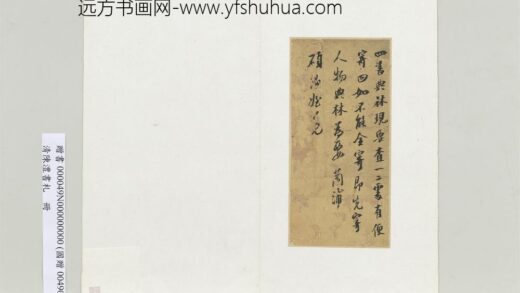 远方书画网-www.yfshuhua.com
四書典林現要查一二處有便
寄回如不能全寄即先寄
人物典林為要 蘭浦
贈書 000049N000000000 (國贈 00490
清陳澧書札 冊